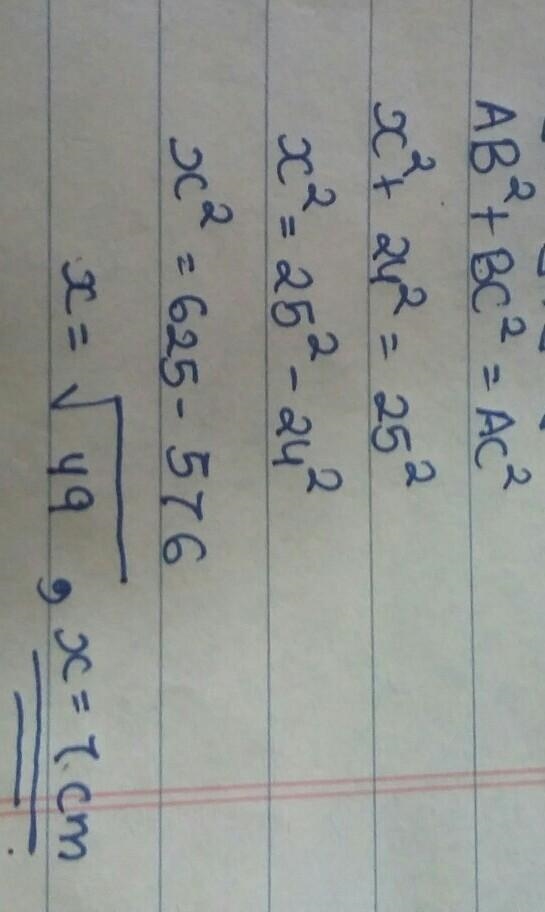 AB² + BC² = AC²
x² + 24² = 25²
x² = 25² - 24²
x² = 625 - 576
x = √49 , x = 7 cm